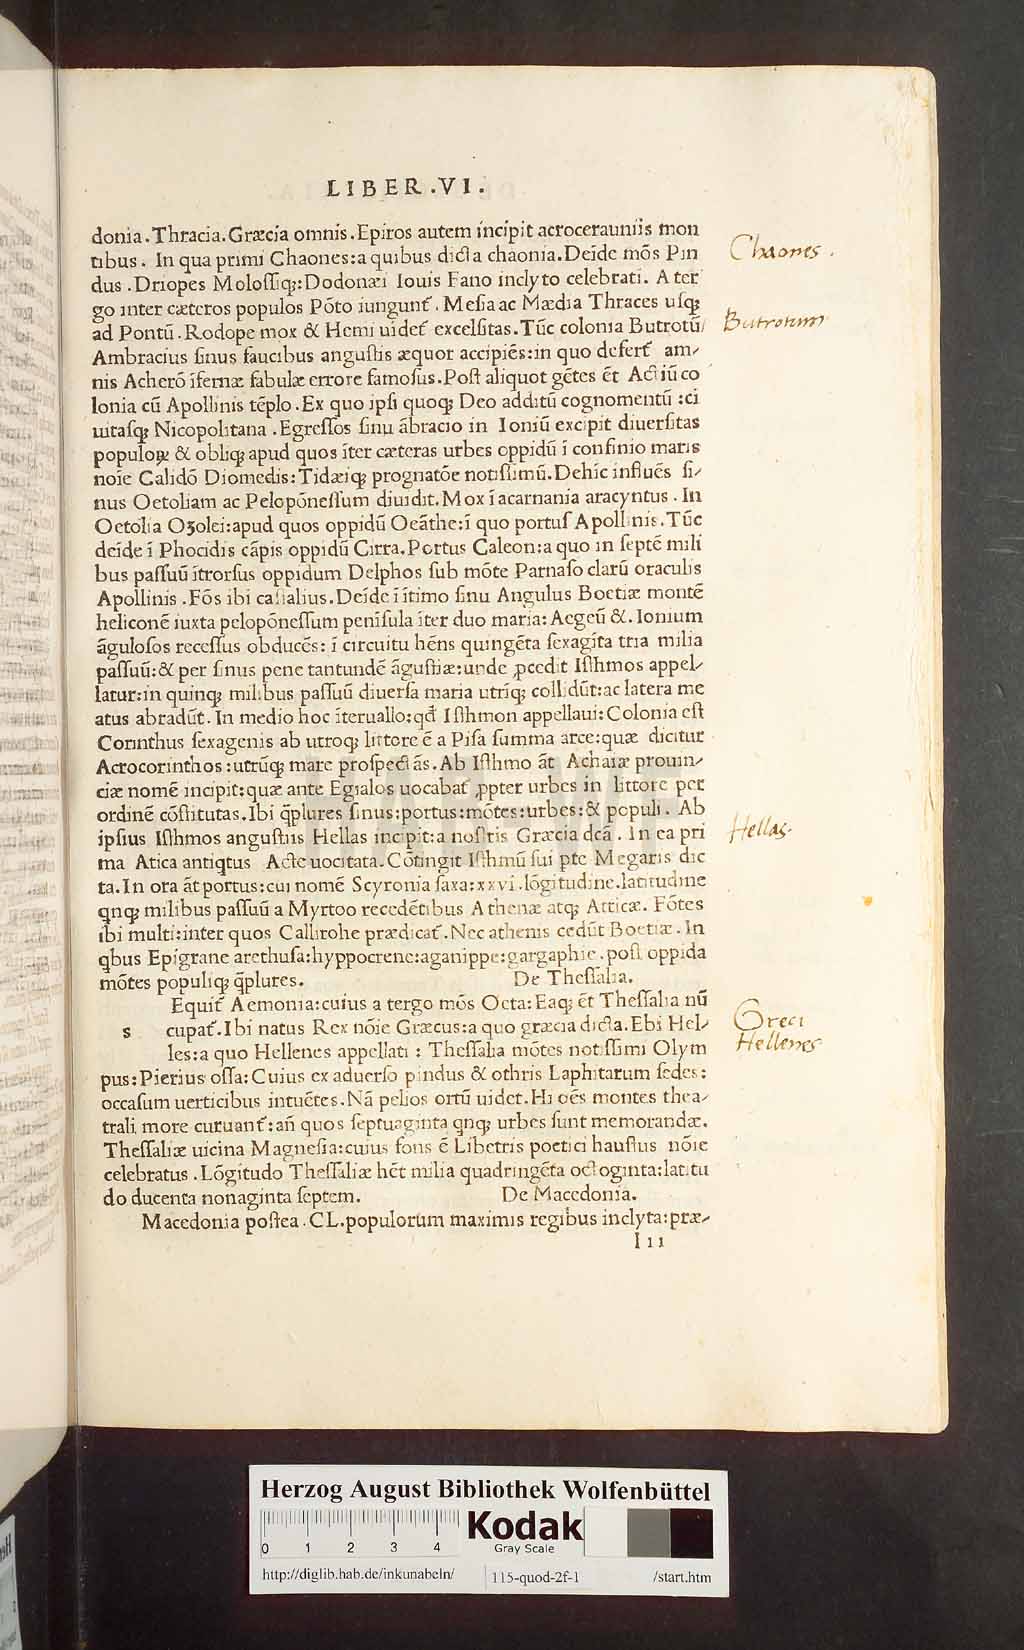 LIBER .VI.
donia. Thracia. Græcia omnis. Epiros autem incipit acrocerauniis mon
tibus. In qua primi Chaones: a quibus dicta chaonia. Deĩde mõs Pin
dus. Driopes Molossiq;: Dodonæi Iouis Fano inclyto celebrati. A ter
go inter cæteros populos Põto iungunt᷑. Mesia ac Mædia Thraces usq;
ad Pontũ. Rodope mox & Hemi uidet᷑ excelsitas. Tũc colonia Butrotũ/
Ambracius sinus faucibus angustis æquor accipiẽs: in quo defert᷑ am-
nis Acherõ ĩfernæ fabulæ errore famosus. Post aliquot gẽtes ẽt Actiũ co
lonia cũ Apollinis tẽplo. Ex quo ipsi quoq; Deo additũ cognomentũ: ci
uitasq; Nicopolitana. Egressos sinu ãbracio in Ioniũ excipit diuersitas
populoꝝ & obliq; apud quos ĩter cæteras urbes oppidũ ĩ confinio maris
noĩe Calidõ Diomedis: Tidæiq; prognatõe notissimũ. Dehĩc influẽs si-
nus Oetoliam ac Pelopõnessum diuidit. Mox ĩ acarnania aracyntus. In
Oetolia Ozolei: apud quos oppidũ Oeãthe: ĩ quo portus Apollinis. Tũc
deĩde ĩ Phocidis cãpis oppidũ Cirra. Portus Caleon: a quo in septẽ mili
bus passuũ ĩtrorsus oppidum Delphos sub mõte Parnaso clarũ oraculis
Apollinis. Fõs ibi castalius. Deĩde ĩ ĩtimo sinu Angulus Boetiæ montẽ
heliconẽ iuxta pelopõnessum penĩsula ĩter duo maria: Aegeũ &. Ionium
ãgulosos recessus obducẽs: ĩ circuitu hẽns quingẽta sexagĩta tria milia
passuũ: & per sinus pene tantundẽ ãgustiæ: unde ꝓcedit Isthmos appel-
latur: in quinq; milibus passuũ diuersa maria utrĩq; collidũt: ac latera me
atus abradũt. In medio hoc ĩteruallo: qđ Isthmon appellaui: Colonia est
Corinthus sexagenis ab utroq; littore ẽ a Pisa summa arce: quæ dicitur
Acrocorinthos: utrũq; mare prospectãs. Ab Isthmo ãt Achaiæ prouin-
ciæ nomẽ incipit: quæ ante Egialos uocabat᷑ ꝓpter urbes in littore per
ordinẽ cõstitutas. Ibi q̃plures sinus: portus: mõtes: urbes: & populi. Ab
ipsius Isthmos angustiis Hellas incipit: a nostris Græcia dcã. In ea pri
ma Atica antiqtus Acte uocitata. Cõtingit Isthmũ sui pte Megaris dic
ta. In ora ãt portus: cui nomẽ Scyronia saxa: xxvi. lõgitudine. latitudine
qnq; milibus passuũ a Myrtoo recedẽtibus Athenæ atq; Atticæ. Fõtes
ibi multi: inter quos Callirohe prædicat᷑. Nec athenis cedũt Boetiæ. In
qbus Epigrane arethusa: hyppocrene: aganippe: gargaphie. post oppida
mõtes populiq; q̃plures. De Thessalia.
Equit᷑ Aemonia: cuius a tergo mõs Octa: Eaq; ẽt Thessalia nũ
s cupat᷑. Ibi natus Rex nõie Græcus: a quo græcia dicta. Ebi Hel-
les: a quo Hellenes appellati: Thessalia mõtes notissimi Olym
pus: Pierius ossa: Cuius ex aduerso pindus & othris Laphitarum sedes:
occasum uerticibus intuẽtes. Nã pelios ortũ uidet. Hi oẽs montes thea-
trali more curuant᷑: añ quos septuaginta qnq; urbes sunt memorandæ.
Thessaliæ uicina Magnesia: cuius fons ẽ Libetris poetici haustus nõie
celebratus. Lõgitudo Thessaliæ hẽt milia quadringẽta octoginta: latitu
do ducenta nonaginta septem. De Macedonia.
Macedonia postea. CL. populorum maximis regibus inclyta: præ-
I iii
Chaones.
Butrotum
Hellas.
Greci
Hellenes
Herzog August Bibliothek Wolfenbüttel
0 1 2 3 4
Kodak
Gray Scale
http://diglib.hab.de/inkunabeln/ 115-quod-2f-1 /start.htm